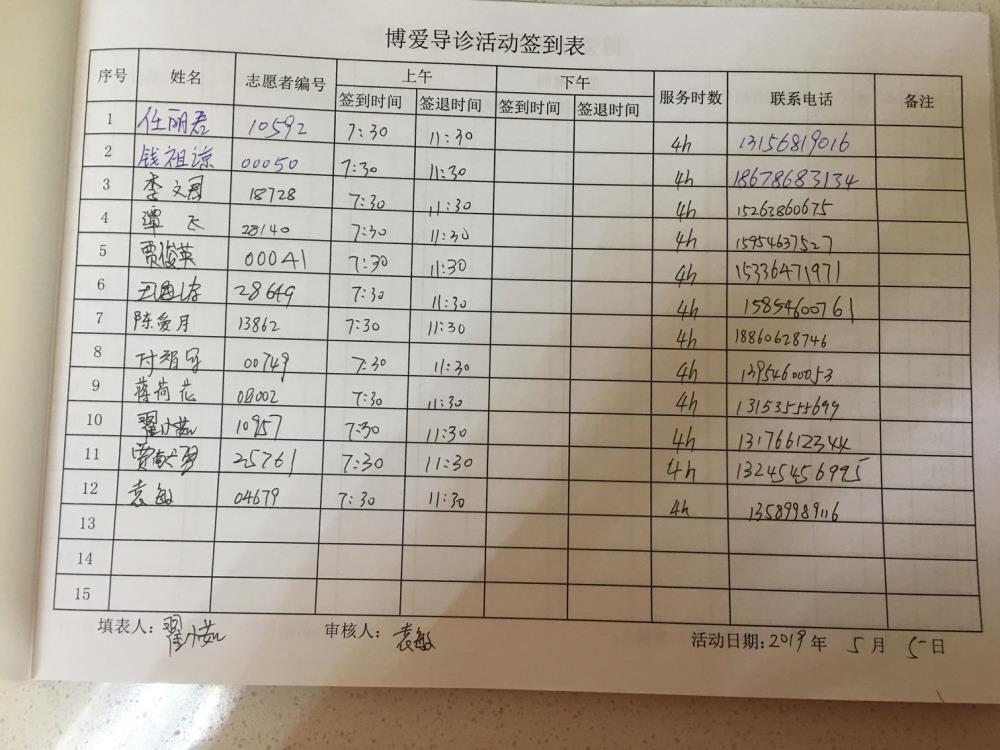 博爱导诊活动签到表
序号 姓名 志愿者编号 上午 下午 服务时数 联系电话 备注
签到时间 签退时间 签到时间 签退时间
1 任丽君 10592 7:30 11:30 4h 13156819016
2 钱祖谅 00050 7:30 11:30 4h 18678683134
3 李文 18728 7:30 11:30 4h 15263860675
4 谭飞 28140 7:30 11:30 4h 15954637527
5 贾俊英 00041 7:30 11:30 4h 15336471971
6 28649 7:30 11:30 4h 15854600761
7 陈爱月 13862 7:30 11:30 4h 18860628746
8 00749 7:30 11:30 4h 13954600053
9 蒋荷花 7:30 11:30 4h 13153555699
10 翟小茹 10957 7:30 11:30 4h 13176612344
11 贾 25761 7:30 11:30 4h 13245456995
12 袁敏 04679 7:30 11:30 4h 13589989116
13
14
15
填表人: 翟小茹 审核人: 袁敏 活动日期: 2019 年 5 月 5 日